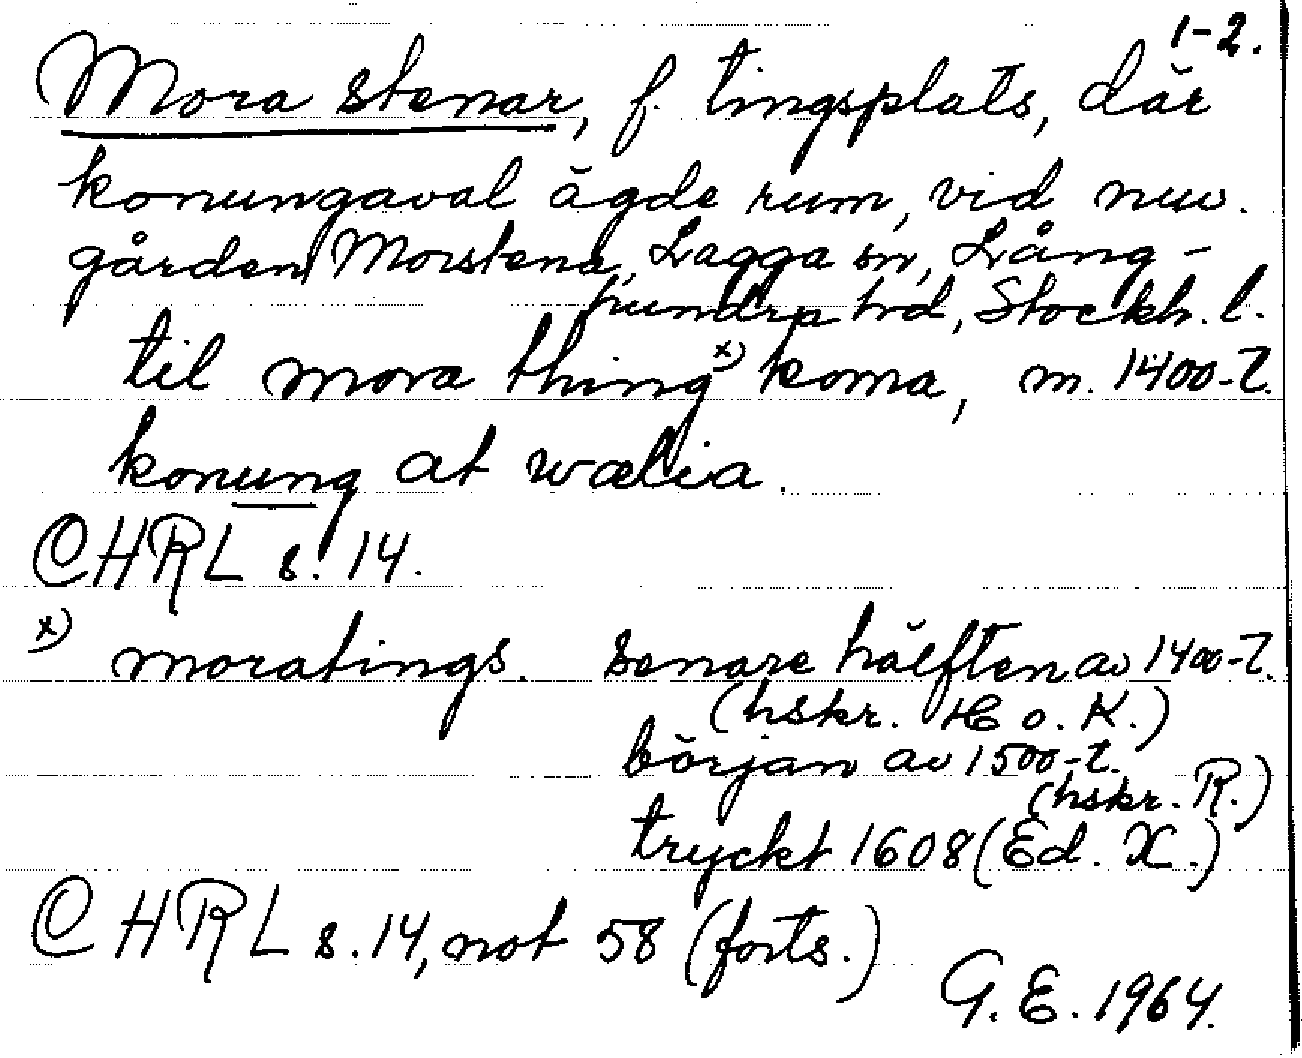 1-2.
Mora stenar, f. tingsplats, där
konungaval ägde rum, vid nuv.
gården Morstena, Lagga sn, Lång-
hundra hd, Stockh. l.
til mora thing x) koma, m. 1400-t.
konung at wælia.
CHRL s. 14.
x) moratings. senare hälften av 1400-t.
(hskr. H o. K.)
början av 1500-t.
(hskr. R.)
tryckt 1608 (Ed. X.)
CHRL s. 14, not 58 (forts.)
G. E. 1964.